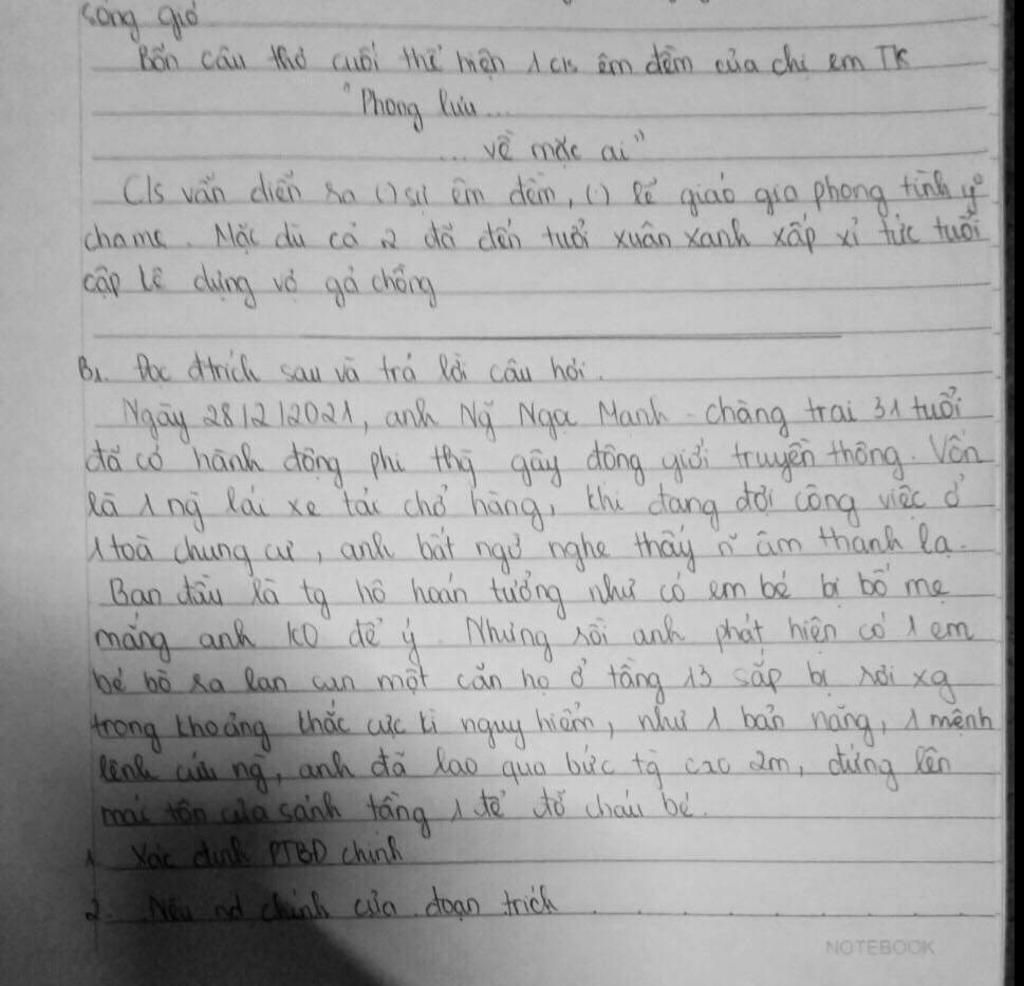 sóng gió
Bốn câu thơ cuối thể hiện 1 c/s êm đềm của chị em TK
"Phong lưu...
... về mặc ai"
C/s vẫn diễn ra () sự êm đềm, () lễ giáo gia phong tình y
cha mẹ. Mặc dù cả 2 đã đến tuổi xuân xanh xấp xỉ tức tuổi
cập kê dựng vợ gả chồng
B1. Đọc đtrích sau và trả lời câu hỏi.
Ngày 28/2/2021, anh Ng̃ Ngọc Mạnh - chàng trai 31 tuổi
đã có hành động phi thg̀ gây động giới truyền thông. Vốn
là 1 ng̀ lái xe tải chở hàng, khi đang đợi công việc ở
1 toà chung cư, anh bất ngờ nghe thấy n~ âm thanh lạ.
Ban đầu là tg hô hoán tưởng như có em bé bị bố mẹ
mắng anh K0 để ý. Nhưng rồi anh phát hiện có 1 em
bé bò ra lan can một căn hộ ở tầng 13 sắp bị rơi xg
trong khoảng khắc cực kì nguy hiểm, như 1 bản năng, 1 mệnh
lệnh cứu ng̀, anh đã lao qua bức tg̀ cao 2m, đứng lên
mái tôn của sảnh tầng 1 để đỡ cháu bé.
1. Xác định PTBĐ chính
2. Nêu nd chính của đoạn trích . . . . . . . . .
NOTEBOOK